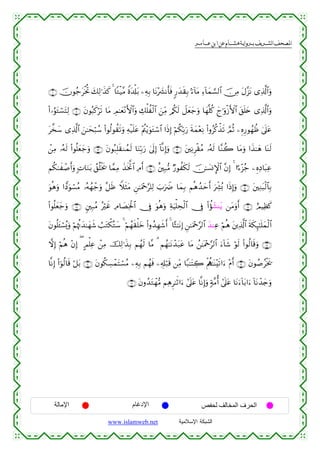 المصحف الشريف برواية هشام عن ابن عامر
وَٱلَّذِى نَزَّلَ مِنَ ٱلسَّمَآءِ مَآءًۢ بِقَدَرٍ فَأَنشَرْنَا بِهِۦ بَلْدَةً مَّيْتًا كَذَٰلِكَ تَخْرُجُونَ ۝
وَٱلَّذِى خَلَقَ ٱلْأَزْوَٰجَ كُلَّهَا وَجَعَلَ لَكُم مِّنَ ٱلْفُلْكِ وَٱلْأَنْعَٰمِ مَا تَرْكَبُونَ ۝ لِتَسْتَوُۥا۟
عَلَىٰ ظُهُورِهِۦ ثُمَّ تَذْكُرُوا۟ نِعْمَةَ رَبِّكُمْ إِذَا ٱسْتَوَيْتُمْ عَلَيْهِ وَتَقُولُوا۟ سُبْحَٰنَ ٱلَّذِى سَخَّرَ
لَنَا هَٰذَا وَمَا كُنَّا لَهُۥ مُقْرِنِينَ ۝ وَإِنَّآ إِلَىٰ رَبِّنَا لَمُنقَلِبُونَ ۝ وَجَعَلُوا۟ لَهُۥ مِنْ
عِبَادِهِۦ جُزْءًا إِنَّ ٱلْإِنسَٰنَ لَكَفُورٌ مُّبِينٌ ۝ أَمِ ٱتَّخَذَ مِمَّا يَخْلُقُ بَنَاتٍ وَأَصْفَىٰكُم
بِٱلْبَنِينَ ۝ وَإِذَا بُشِّرَ أَحَدُهُم بِمَا ضَرَبَ لِلرَّحْمَٰنِ مَثَلًا ظَلَّ وَجْهُهُۥ مُسْوَدًّا وَهُوَ
كَظِيمٌ ۝ أَوَمَن يَنشَؤُا۟ فِى ٱلْحِلْيَةِ وَهُوَ فِى ٱلْخِصَامِ غَيْرُ مُبِينٍ ۝ وَجَعَلُوا۟
ٱلْمَلَٰٓئِكَةَ ٱلَّذِينَ هُمْ عِندَ ٱلرَّحْمَٰنِ إِنَٰثًا أَشَهِدُوا۟ خَلْقَهُمْ سَتُكْتَبُ شَهَٰدَتُهُمْ وَيُسْـَٔلُونَ
۝ وَقَالُوا۟ لَوْ شَآءَ ٱلرَّحْمَٰنُ مَا عَبَدْنَٰهُم مَّا لَهُم بِذَٰلِكَ مِنْ عِلْمٍ إِنْ هُمْ إِلَّا
يَخْرُصُونَ ۝ أَمْ ءَاتَيْنَٰهُمْ كِتَٰبًا مِّن قَبْلِهِۦ فَهُم بِهِۦ مُسْتَمْسِكُونَ ۝ بَلْ قَالُوٓا۟ إِنَّا
وَجَدْنَآ ءَابَآءَنَا عَلَىٰٓ أُمَّةٍ وَإِنَّا عَلَىٰٓ ءَاثَٰرِهِم مُّهْتَدُونَ ۝
الحرف المخالف لحفص الإدغام الإمالة
الشبكة الإسلامية www.islamweb.net